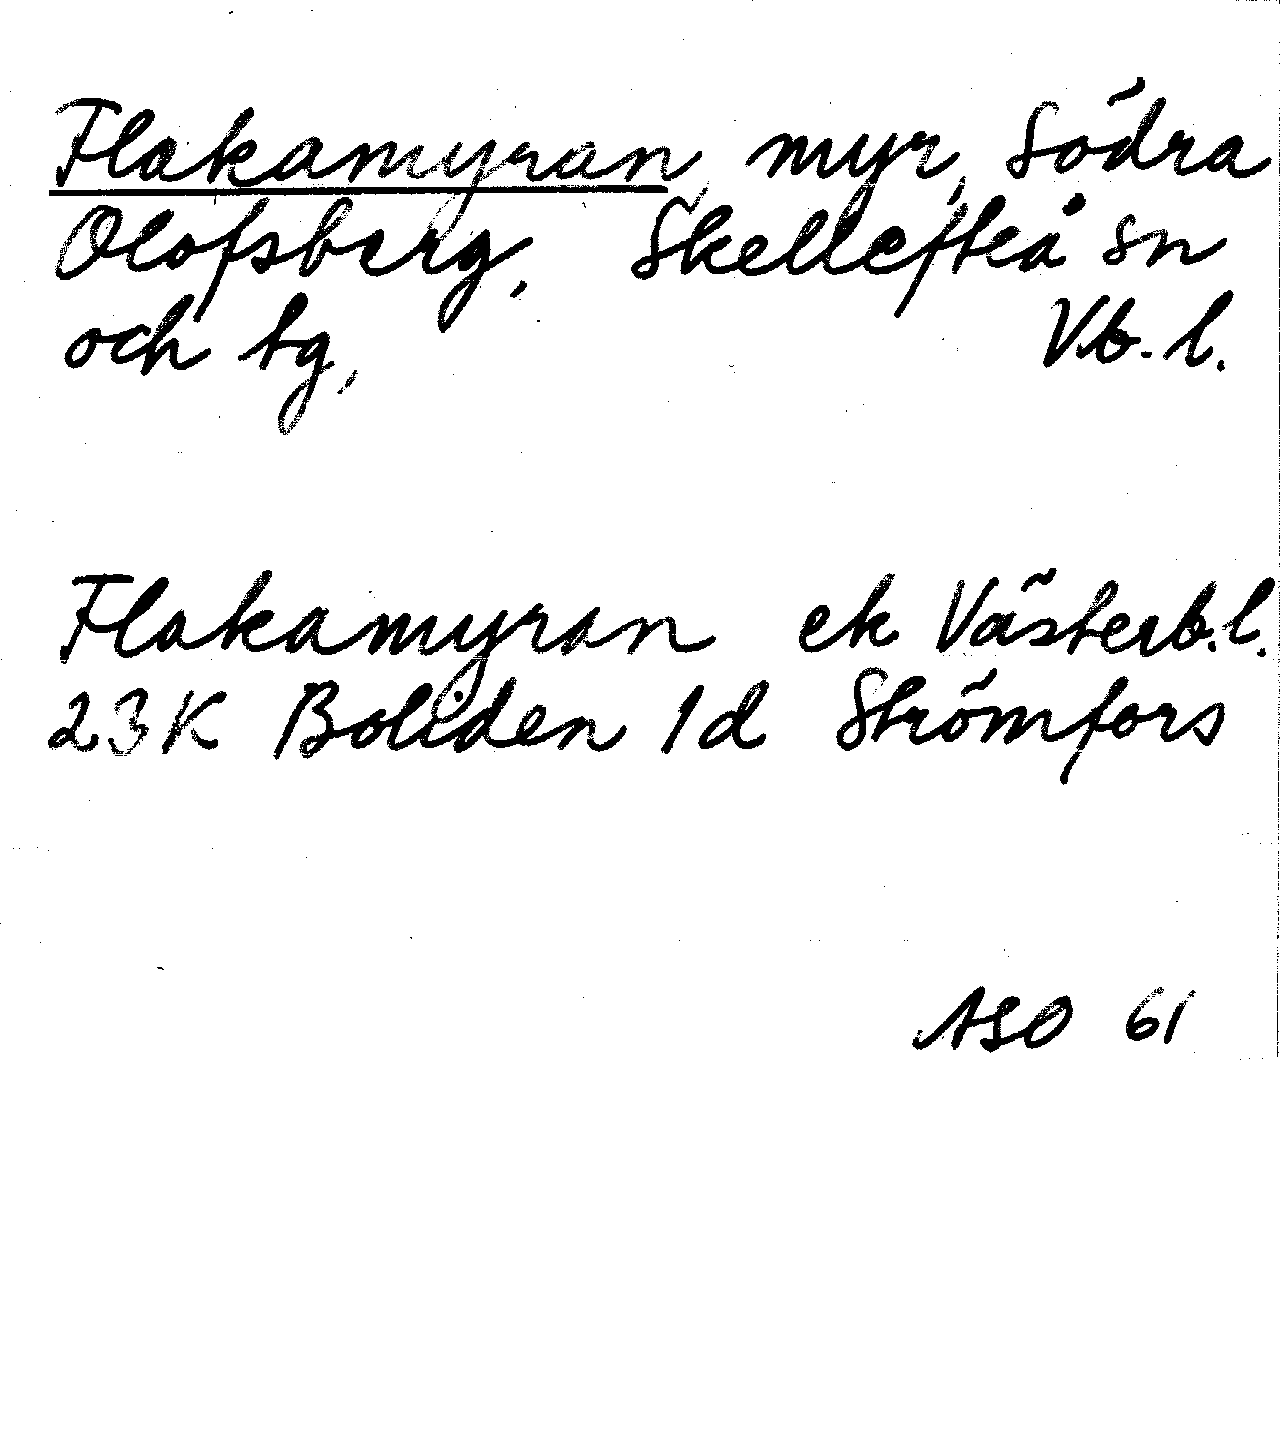 Flakamyran, myr, Södra
Olofsberg, Skellefteå sn
och tg, Vb. l.
Flakamyran ek Västerb. l.
23K Boliden 1d Strömfors
ASO 61